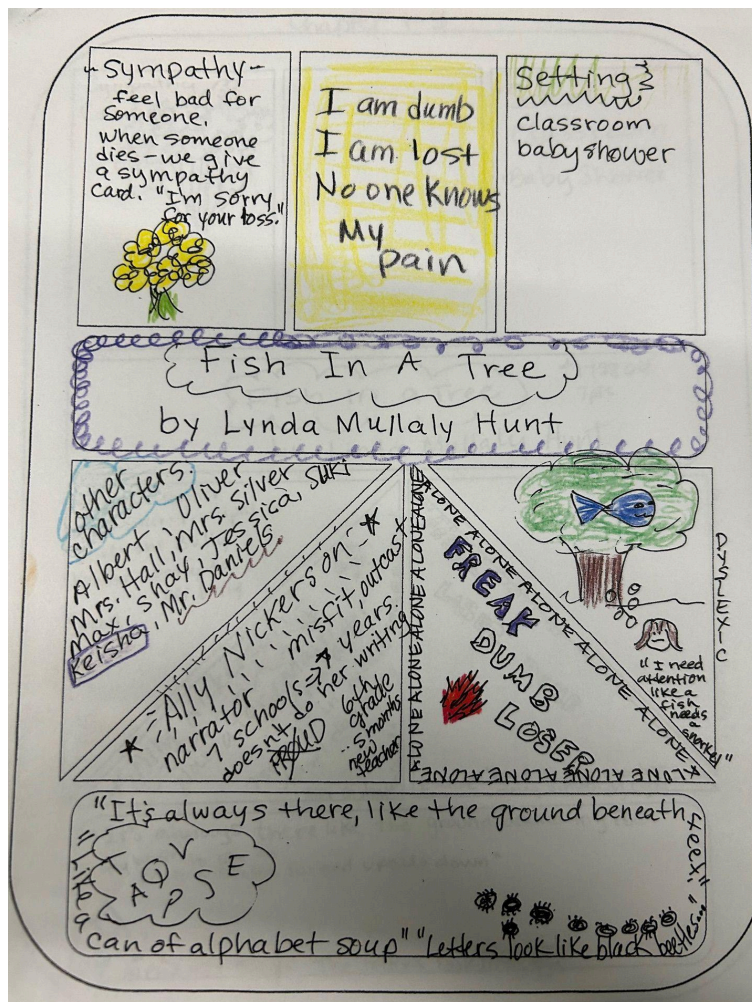 - Sympathy -
feel bad for
someone.
when someone
dies - we give
a sympathy
card. "I'm sorry
for your loss."
I am dumb
I am lost
No one knows
My
pain
Setting
classroom
baby shower
Fish In A Tree
by Lynda Mullaly Hunt
other
characters
Albert, Oliver
Mrs. Hall, Mrs. Silver
Max, Shay, Jessica, Suki
Keisha, Mr. Daniels
Ally Nickerson
narrator misfit, outcast
7 schools → 7 years
doesn't do her writing
PROUD
6th
grade
5 months
new
teacher
ALONE ALONE ALONE ALONE ALONE
ALONE ALONE ALONE ALONE ALONE ALONE
FREAK
DUMB
LOSER
ALONE ALONE ALONE ALONE ALONE
DYSLEXIC
"I need
attention
like a
fish
needs
a
snorkel"
"It's always there, like the ground beneath
feet."
A Q V
P S E
can of alphabet soup" "Letters look like black beetles...